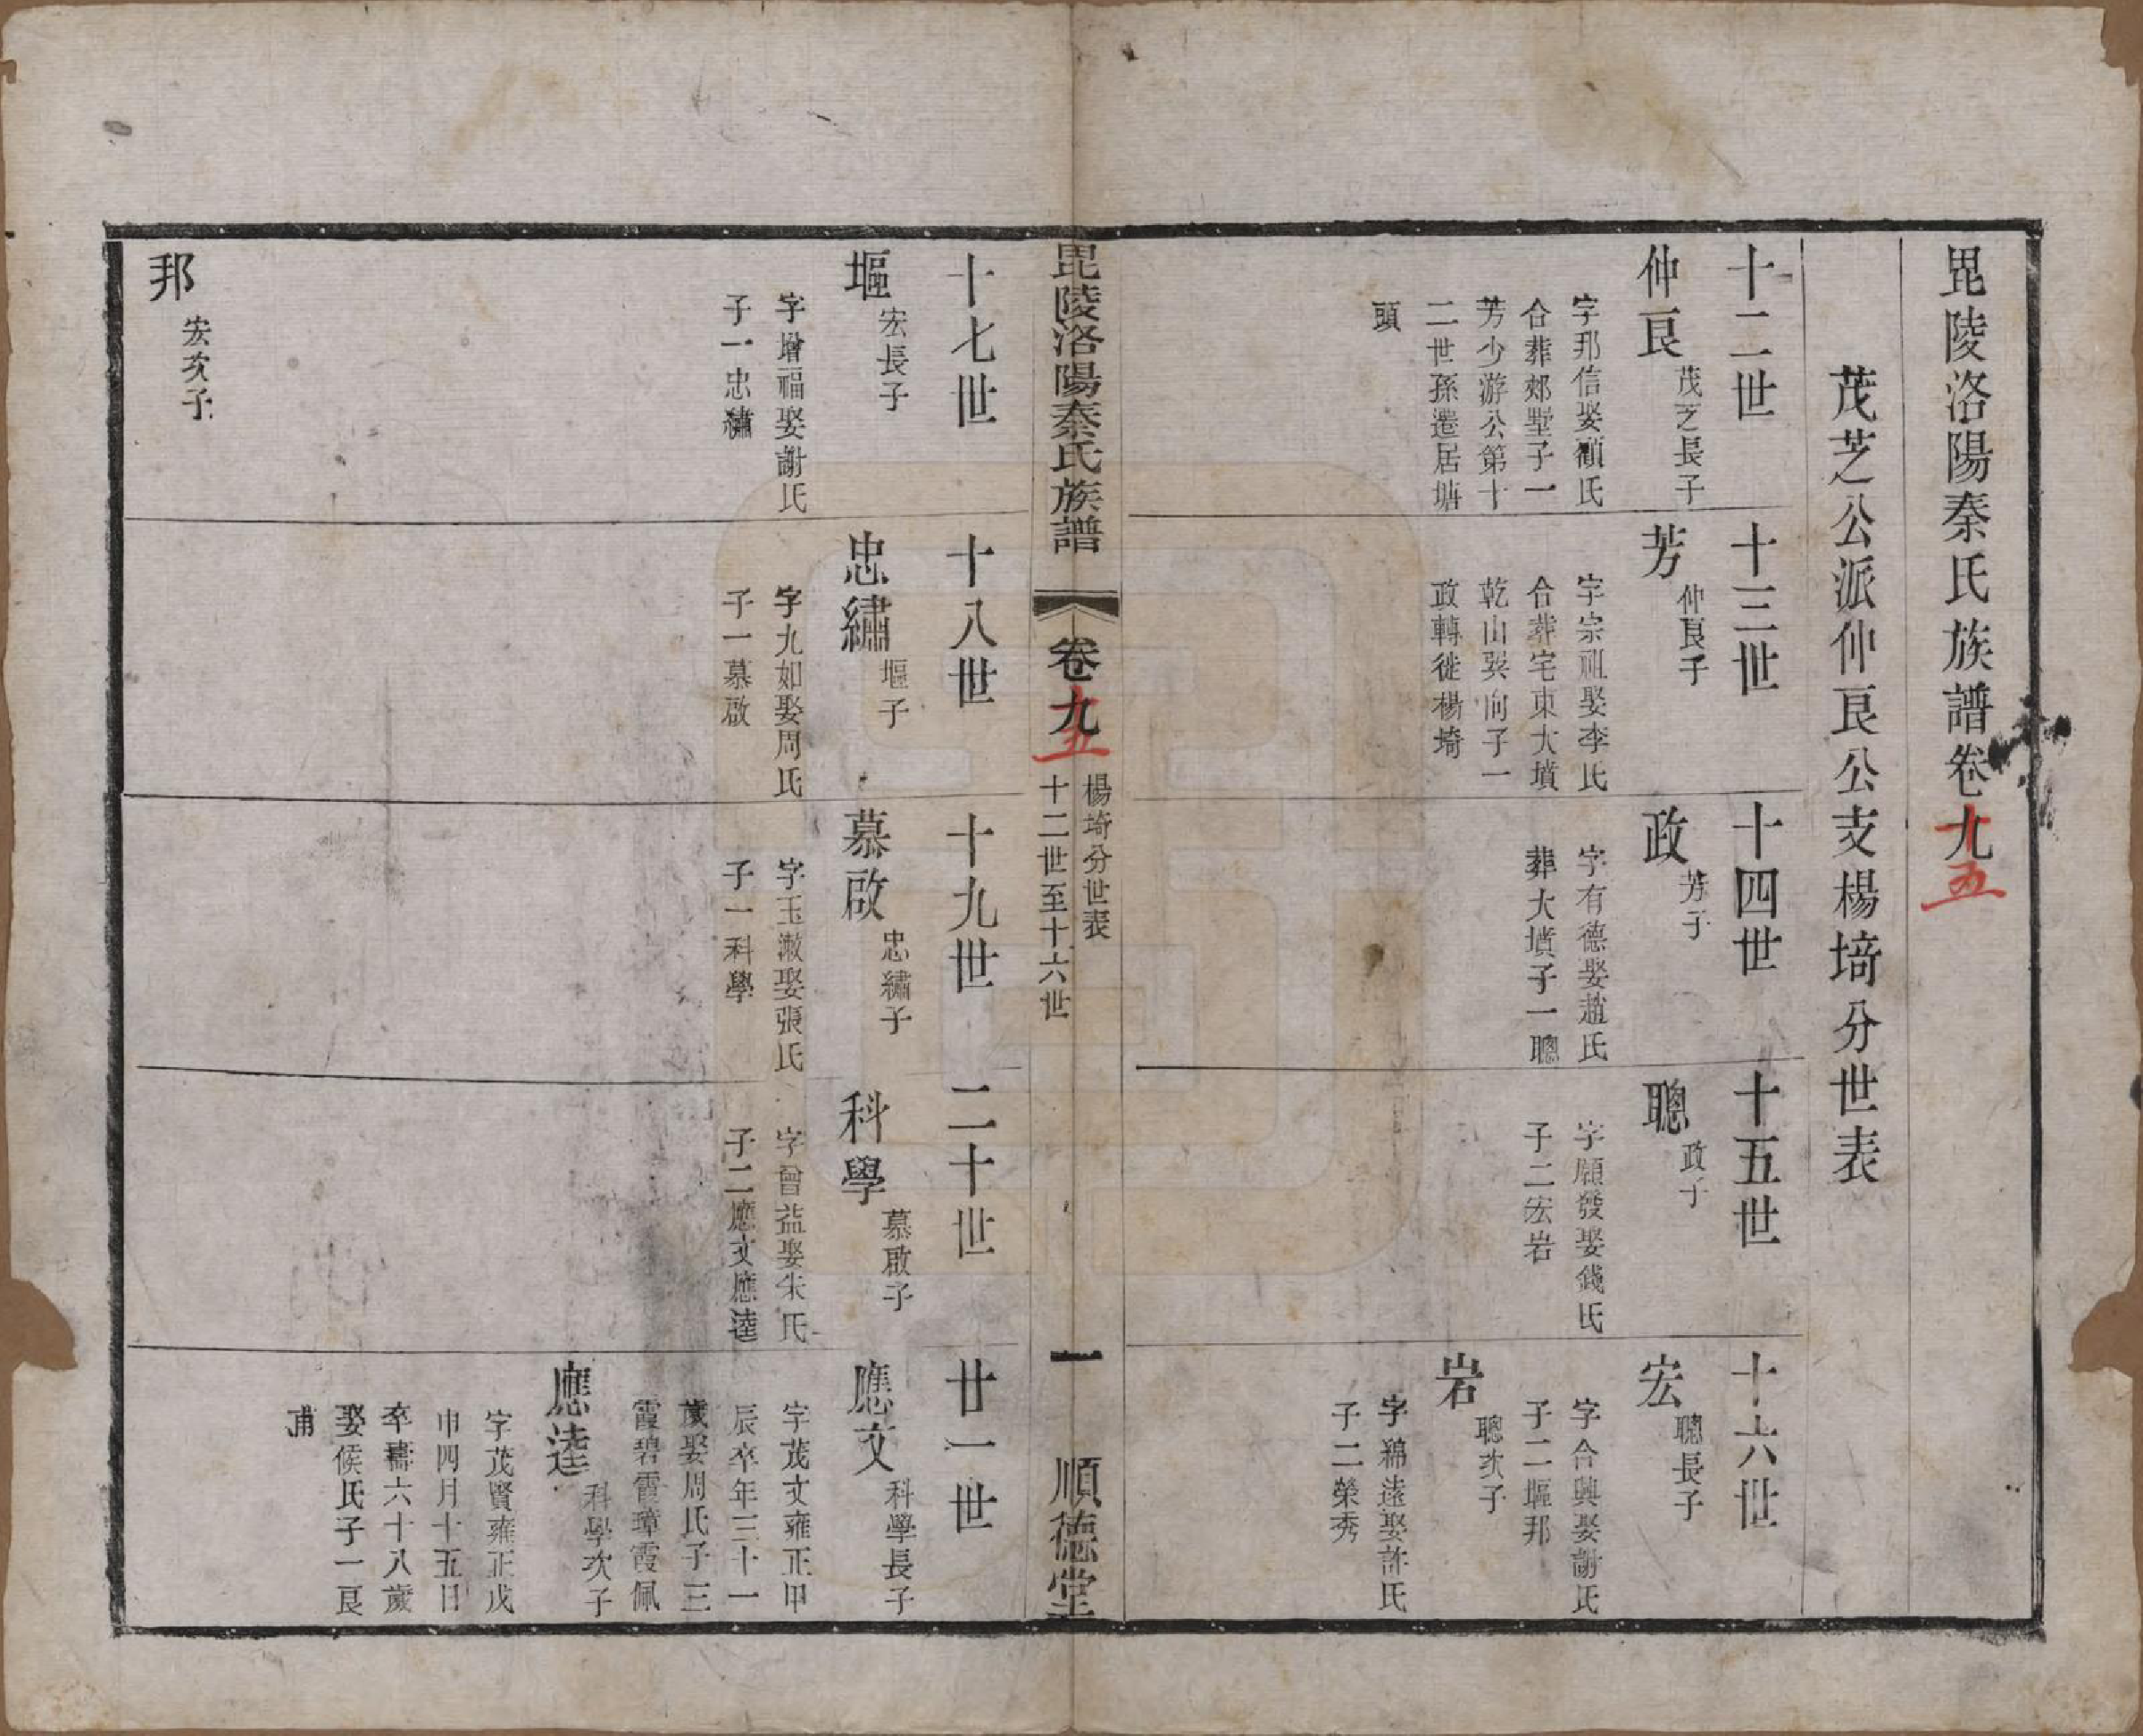 毘陵洛陽秦氏族譜卷九
五
茂芝公派仲良公支楊埼分世表
十二世
仲良
茂芝長子
字邦信娶顧氏
合葬郊墅子一
芳少游公第十
二世孫遷居塘
頭
十三世
芳
仲良子
字宗祖娶李氏
合葬宅東大墳
乾山巽向子一
政轉徙楊埼
十四世
政
芳子
字有德娶趙氏
葬大墳子一聰
十五世
聰
政子
字願發娶錢氏
子二宏岩
十六世
宏
聰長子
字合興娶謝氏
子二堰邦
岩
聰次子
字綿遠娶許氏
子二榮秀
毘陵洛陽秦氏族譜
卷九
五
楊埼分世表
十二世至十六世
一
順德堂
十七世
堰
宏長子
字增福娶謝氏
子一忠繡
邦
宏次子
十八世
忠繡
堰子
字九如娶周氏
子一慕啟
十九世
慕啟
忠繡子
字玉漵娶張氏
子一科學
二十世
科學
慕啟子
字曾益娶朱氏
子二應文應逵
廿一世
應文
科學長子
字茂文雍正甲
辰卒年三十一
歲娶周氏子三
霞碧霞璋霞佩
應逵
科學次子
字茂賢雍正戊
申四月十五日
卒壽六十八歲
娶侯氏子一良
甫